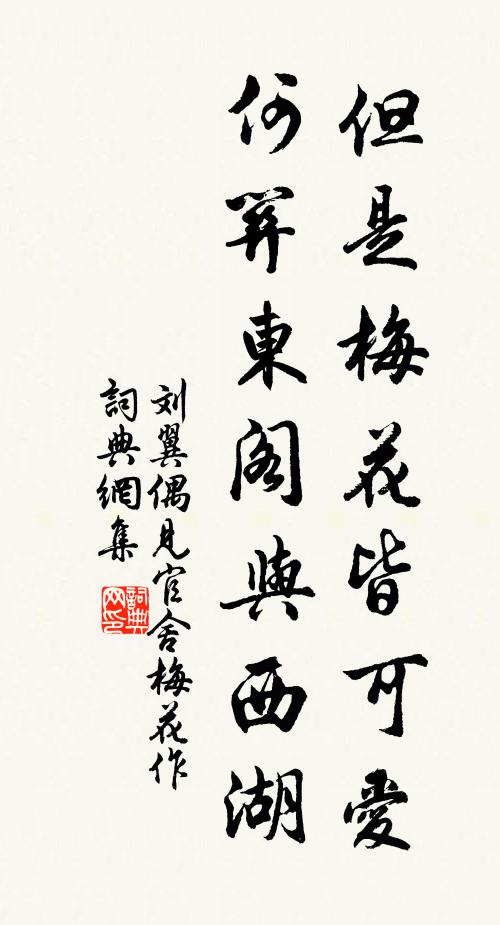 但是梅花皆可愛
何羿東阁與西湖
刘翼偶見官舍梅花作
詞典網集
詞典网印